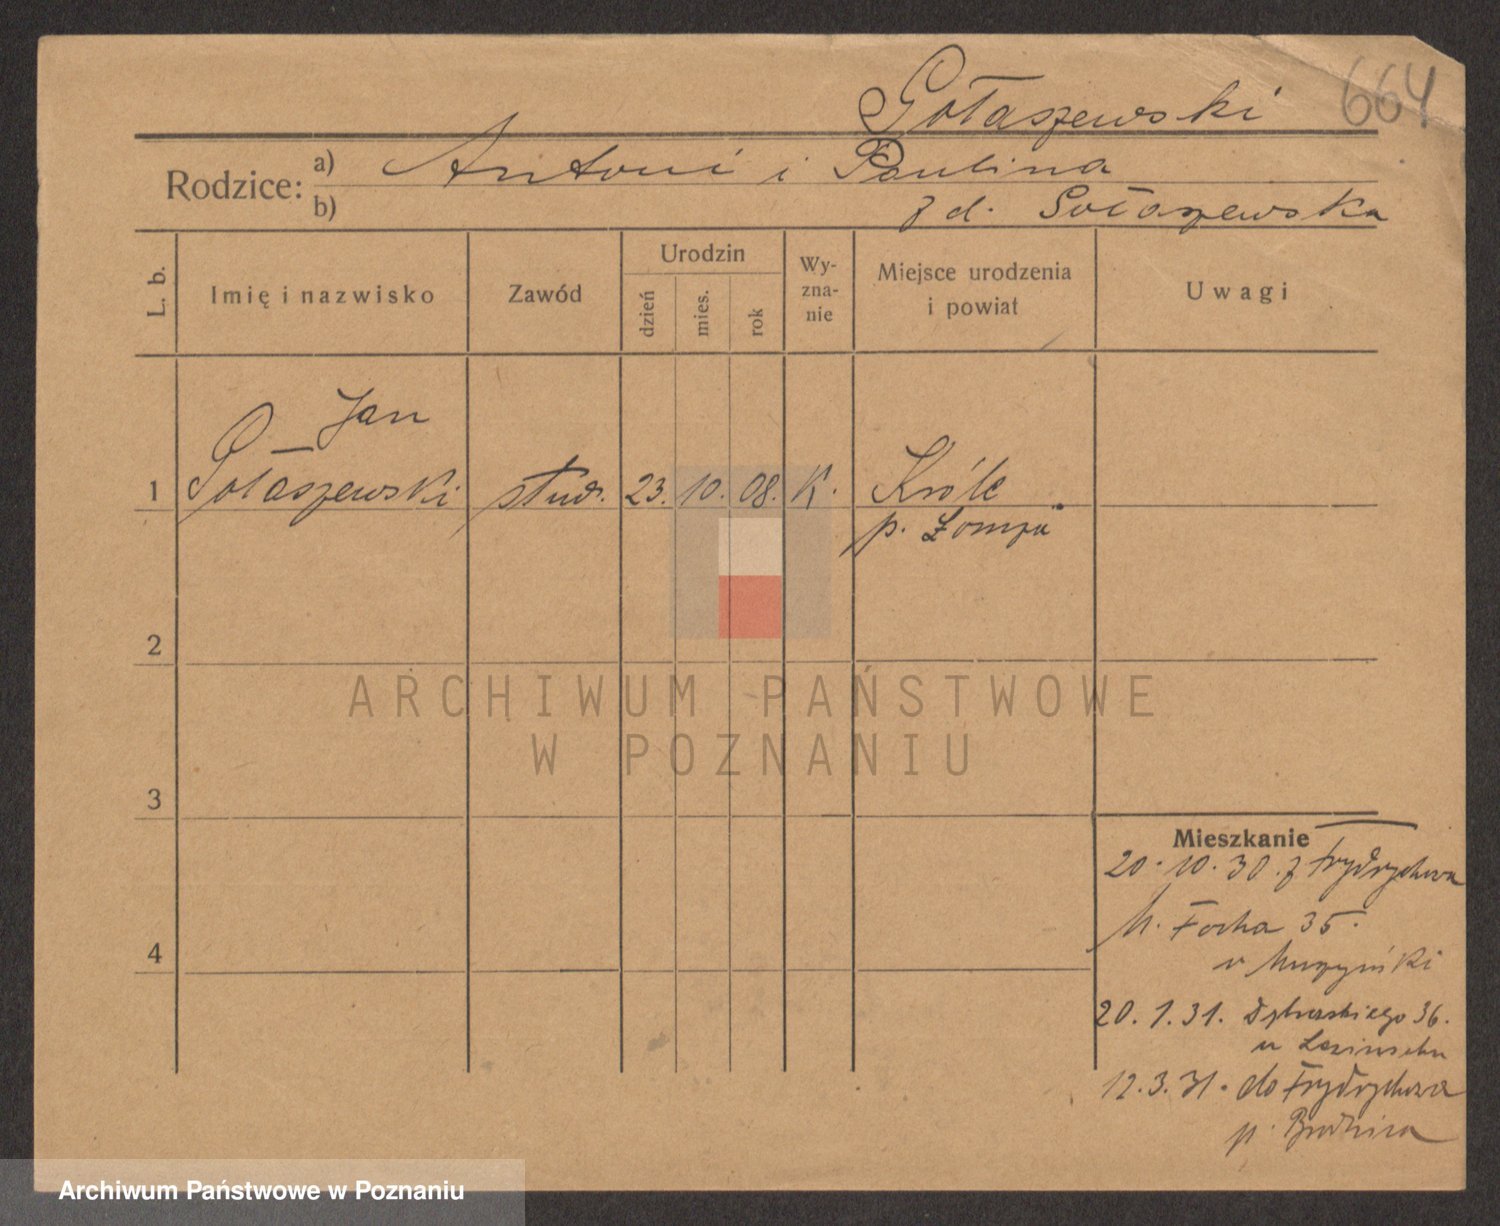 Gołaszewski 664
Rodzice: a) Antoni i Paulina
b) z d. Gołaszewska
L. b. Imię i nazwisko Zawód Urodzin dzień mies. rok Wy-zna-nie Miejsce urodzenia i powiat Uwagi
Jan
1 Gołaszewski stud. 23. 10. 08. K. Króle
p. Łomża
2
ARCHIWUM PAŃSTWOWE
W POZNANIU
3
Mieszkanie
20.10.30. z Frydrychowa
M. Focha 35.
u Muszyński
4
20.1.31. Dąbrowskiego 36.
u
12.3.31. do Frydrychowa
p. Brodnica
Archiwum Państwowe w Poznaniu